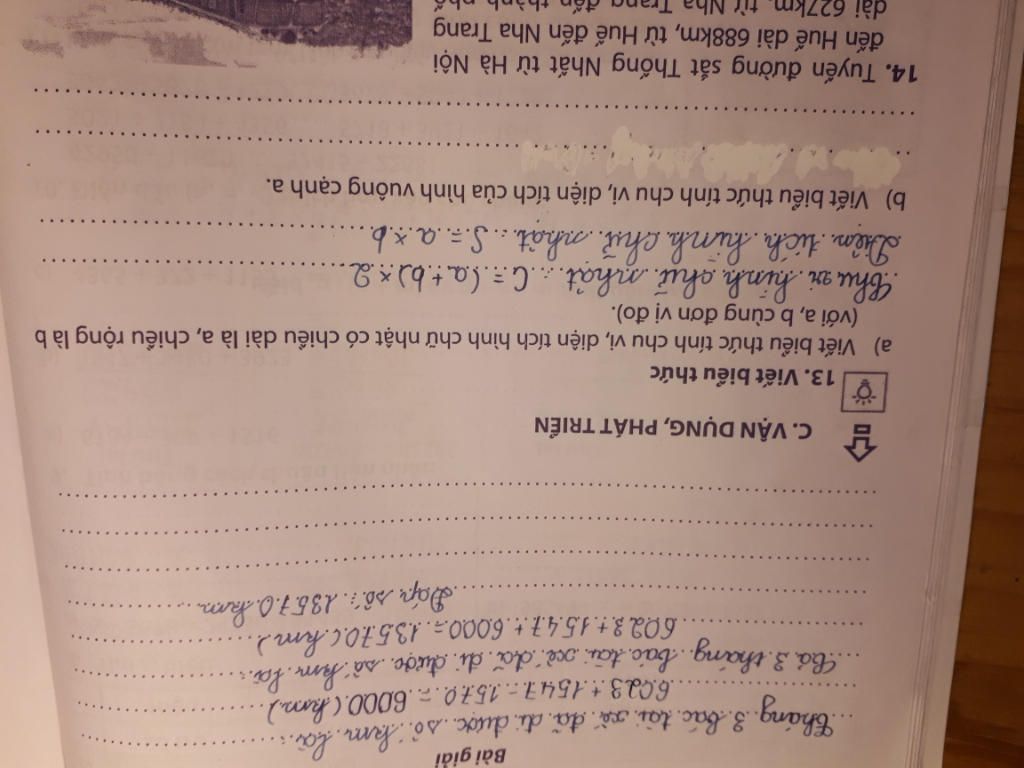 Bài giải
Tháng 3 bác tài xế đã đi được số km là:
6023 + 1547 - 1570 = 6000 (km)
Cả 3 tháng bác tài xế đã đi được số km là:
6023 + 1547 + 6000 = 13570 (km)
Đáp số: 13570 km
C. VẬN DỤNG, PHÁT TRIỂN
13. Viết biểu thức
a) Viết biểu thức tính chu vi, diện tích hình chữ nhật có chiều dài là a, chiều rộng là b
(với a, b cùng đơn vị đo).
Chu vi hình chữ nhật: C = (a + b) × 2
Diện tích hình chữ nhật: S = a × b
b) Viết biểu thức tính chu vi, diện tích của hình vuông cạnh a.
14. Tuyến đường sắt Thống Nhất từ Hà Nội
đến Huế dài 688km, từ Huế đến Nha Trang
dài 627km, từ Nha Trang đến thành phố